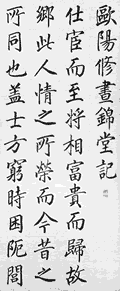 歐陽修晝錦堂記
仕宦而至將相富貴而歸故
鄉此人情之所榮而今昔之
所同也蓋士方窮時困阨閭